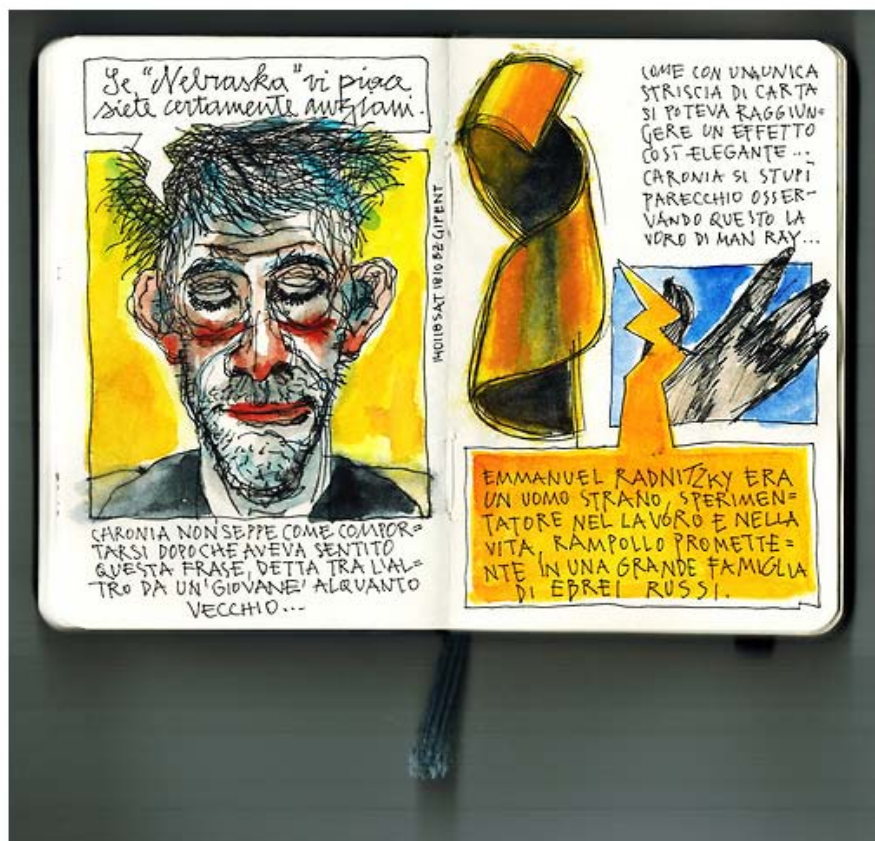 Se "Nebraska" vi piace
siete certamente anziani.
CARONIA NON SEPPE COME COMPOR=
TARSI DOPO CHE AVEVA SENTITO
QUESTA FRASE, DETTA TRA L'AL=
TRO DA UN 'GIOVANE' ALQUANTO
VECCHIO...
140118 SAT 1810 BZ GIPENT
COME CON UN'UNICA
STRISCIA DI CARTA
SI POTEVA RAGGIUN=
GERE UN EFFETTO
COSÌ ELEGANTE...
CARONIA SI STUPÌ
PARECCHIO OSSER-
VANDO QUESTO LA
VORO DI MAN RAY...
EMMANUEL RADNITZKY ERA
UN UOMO STRANO, SPERIMEN=
TATORE NEL LAVORO E NELLA
VITA, RAMPOLLO PROMETTE=
NTE IN UNA GRANDE FAMIGLIA
DI EBREI RUSSI.